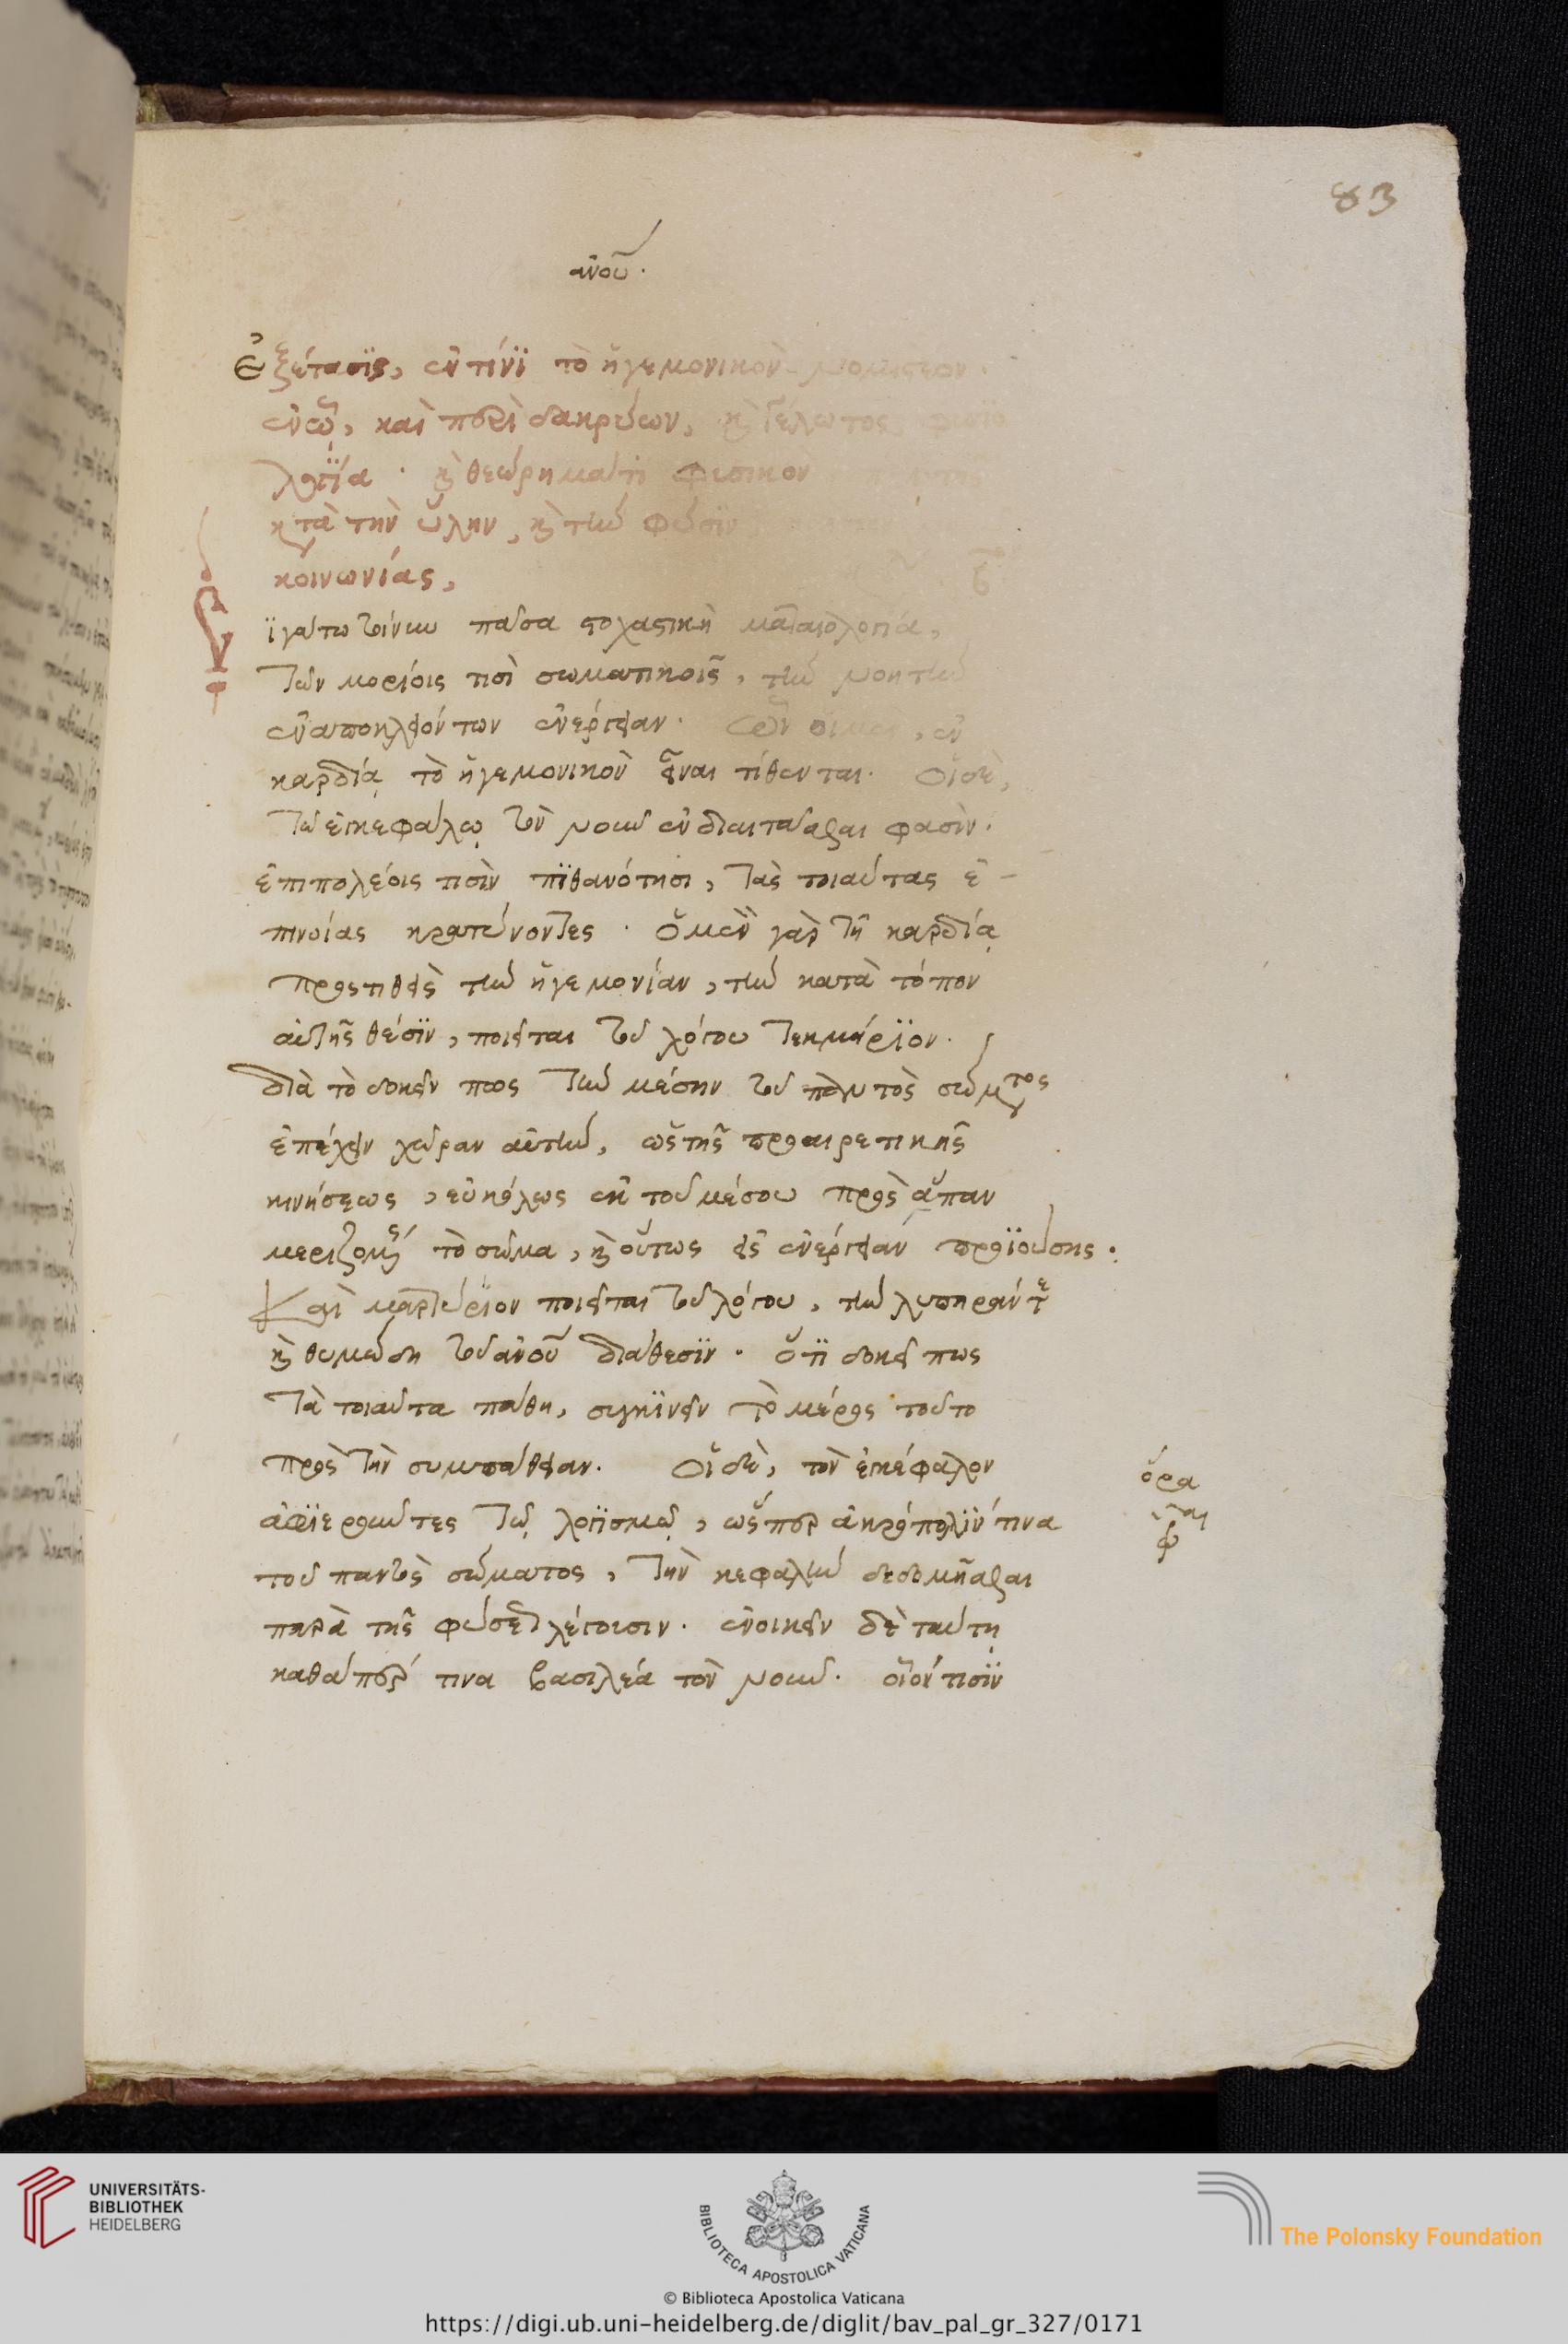 83
ἀνοῦ.
Ἐξέτασϊς, ἐν τίνϊ τὸ ἡγεμονικὸν νομιστέον.
ἐν ᾧ, καὶ περὶ δακρύων, κ̀ γέλωτος φυσϊο
λογΐα · κ̀ θεώρημά τι φυσικὸν
κτὰ τὴν ὕλην, κ̀ τὴν φύσϊν
κοινωνίας,
ϊγάτω τοίνυν πᾶσα στοχαστικὴ ματαιολογία,
τῶν μορίοις τισὶ σωματικοῖς, τὴν νοητὴν
ἐναποκλειόντων ἐνέργειαν. ὧν οἱ μὲν, ἐν
καρδίᾳ τὸ ἡγεμονικὸν εἶναι τίθενται. Οἱ δὲ,
τῷ ἐγκεφάλῳ τὸν νοῦν ἐνδιαιτᾶσθαι φασὶν.
ἐπιπολαίοις τισὶν πϊθανότησι, τὰς τοιαύτας ἐ-
πινοίας κρατύνοντες · ὁ μὲν γὰρ τῇ καρδίᾳ
προστιθεὶς τὴν ἡγεμονίαν, τὴν κατὰ τόπον
αὐτῆς θέσϊν, ποιεῖται τοῦ λόγου τεκμήρϊον.
διὰ τὸ δοκεῖν πως τὴν μέσην τοῦ παντὸς σώμτος
ἐπέχειν χώραν αὐτὴν, ὡς τῆς προαιρετικῆς
κινήσεως, εὐκόλως ἐκ τοῦ μέσου πρὸς ἅπαν
μεριζομς τὸ σῶμα, κ̀ οὕτως εἰς ἐνέργειαν προϊούσης.
Καὶ μαρτύρϊον ποιεῖται τοῦ λόγου, τὴν λυπηράν τε
κ̀ θυμώδη τοῦ ἀνοῦ διάθεσϊν. ὅτϊ δοκεῖ πως
τὰ τοιαῦτα πάθη, συγκϊνεῖν τὸ μέρος τοῦτο
πρὸς τὴν συμπάθειαν. Οἱ δὲ, τὸν ἐγκέφαλον
ὅρα
ἀφϊεροῦντες τῷ λογϊσμῷ, ὥσπερ ἀκρόπολϊν τινα
τοῦ παντὸς σώματος, τὴν κεφαλὴν δεδομῆσθαι
παρὰ τῆς φύσεως λέγουσιν. ἐνοικεῖν δὲ ταύτῃ
καθάπερ τινα βασιλέα τὸν νοῦν. οἷόν τισϊν
UNIVERSITÄTS-
BIBLIOTHEK
HEIDELBERG
BIBLIOTECA APOSTOLICA VATICANA
The Polonsky Foundation
© Biblioteca Apostolica Vaticana
https://digi.ub.uni-heidelberg.de/diglit/bav_pal_gr_327/0171